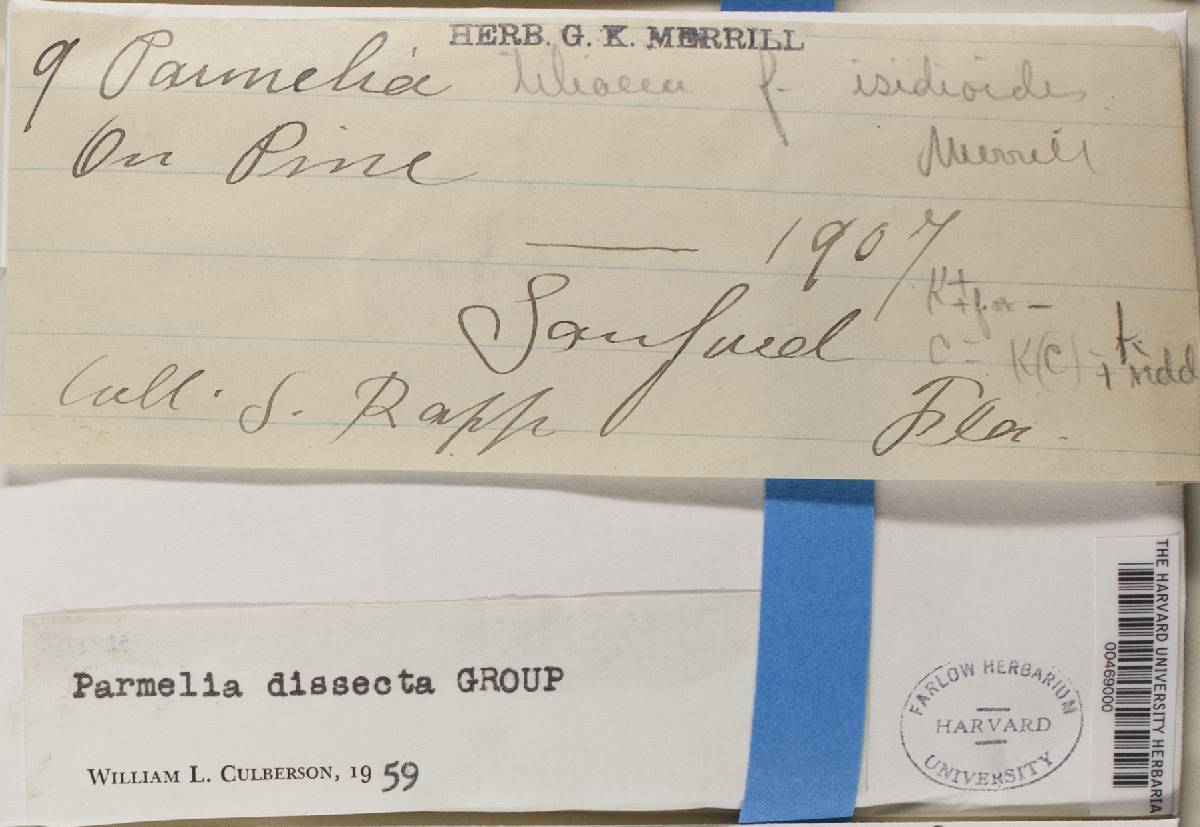 HERB. G. K. MERRILL
9 Parmelia tiliacea f. isidioides
Merrill
On Pine
— 1907
Sanford
K+
C- K(C)
Coll. S. Rapp Fla.
Parmelia dissecta GROUP
WILLIAM L. CULBERSON, 1959
FARLOW HERBARIUM
HARVARD
UNIVERSITY
THE HARVARD UNIVERSITY HERBARIA
00469000